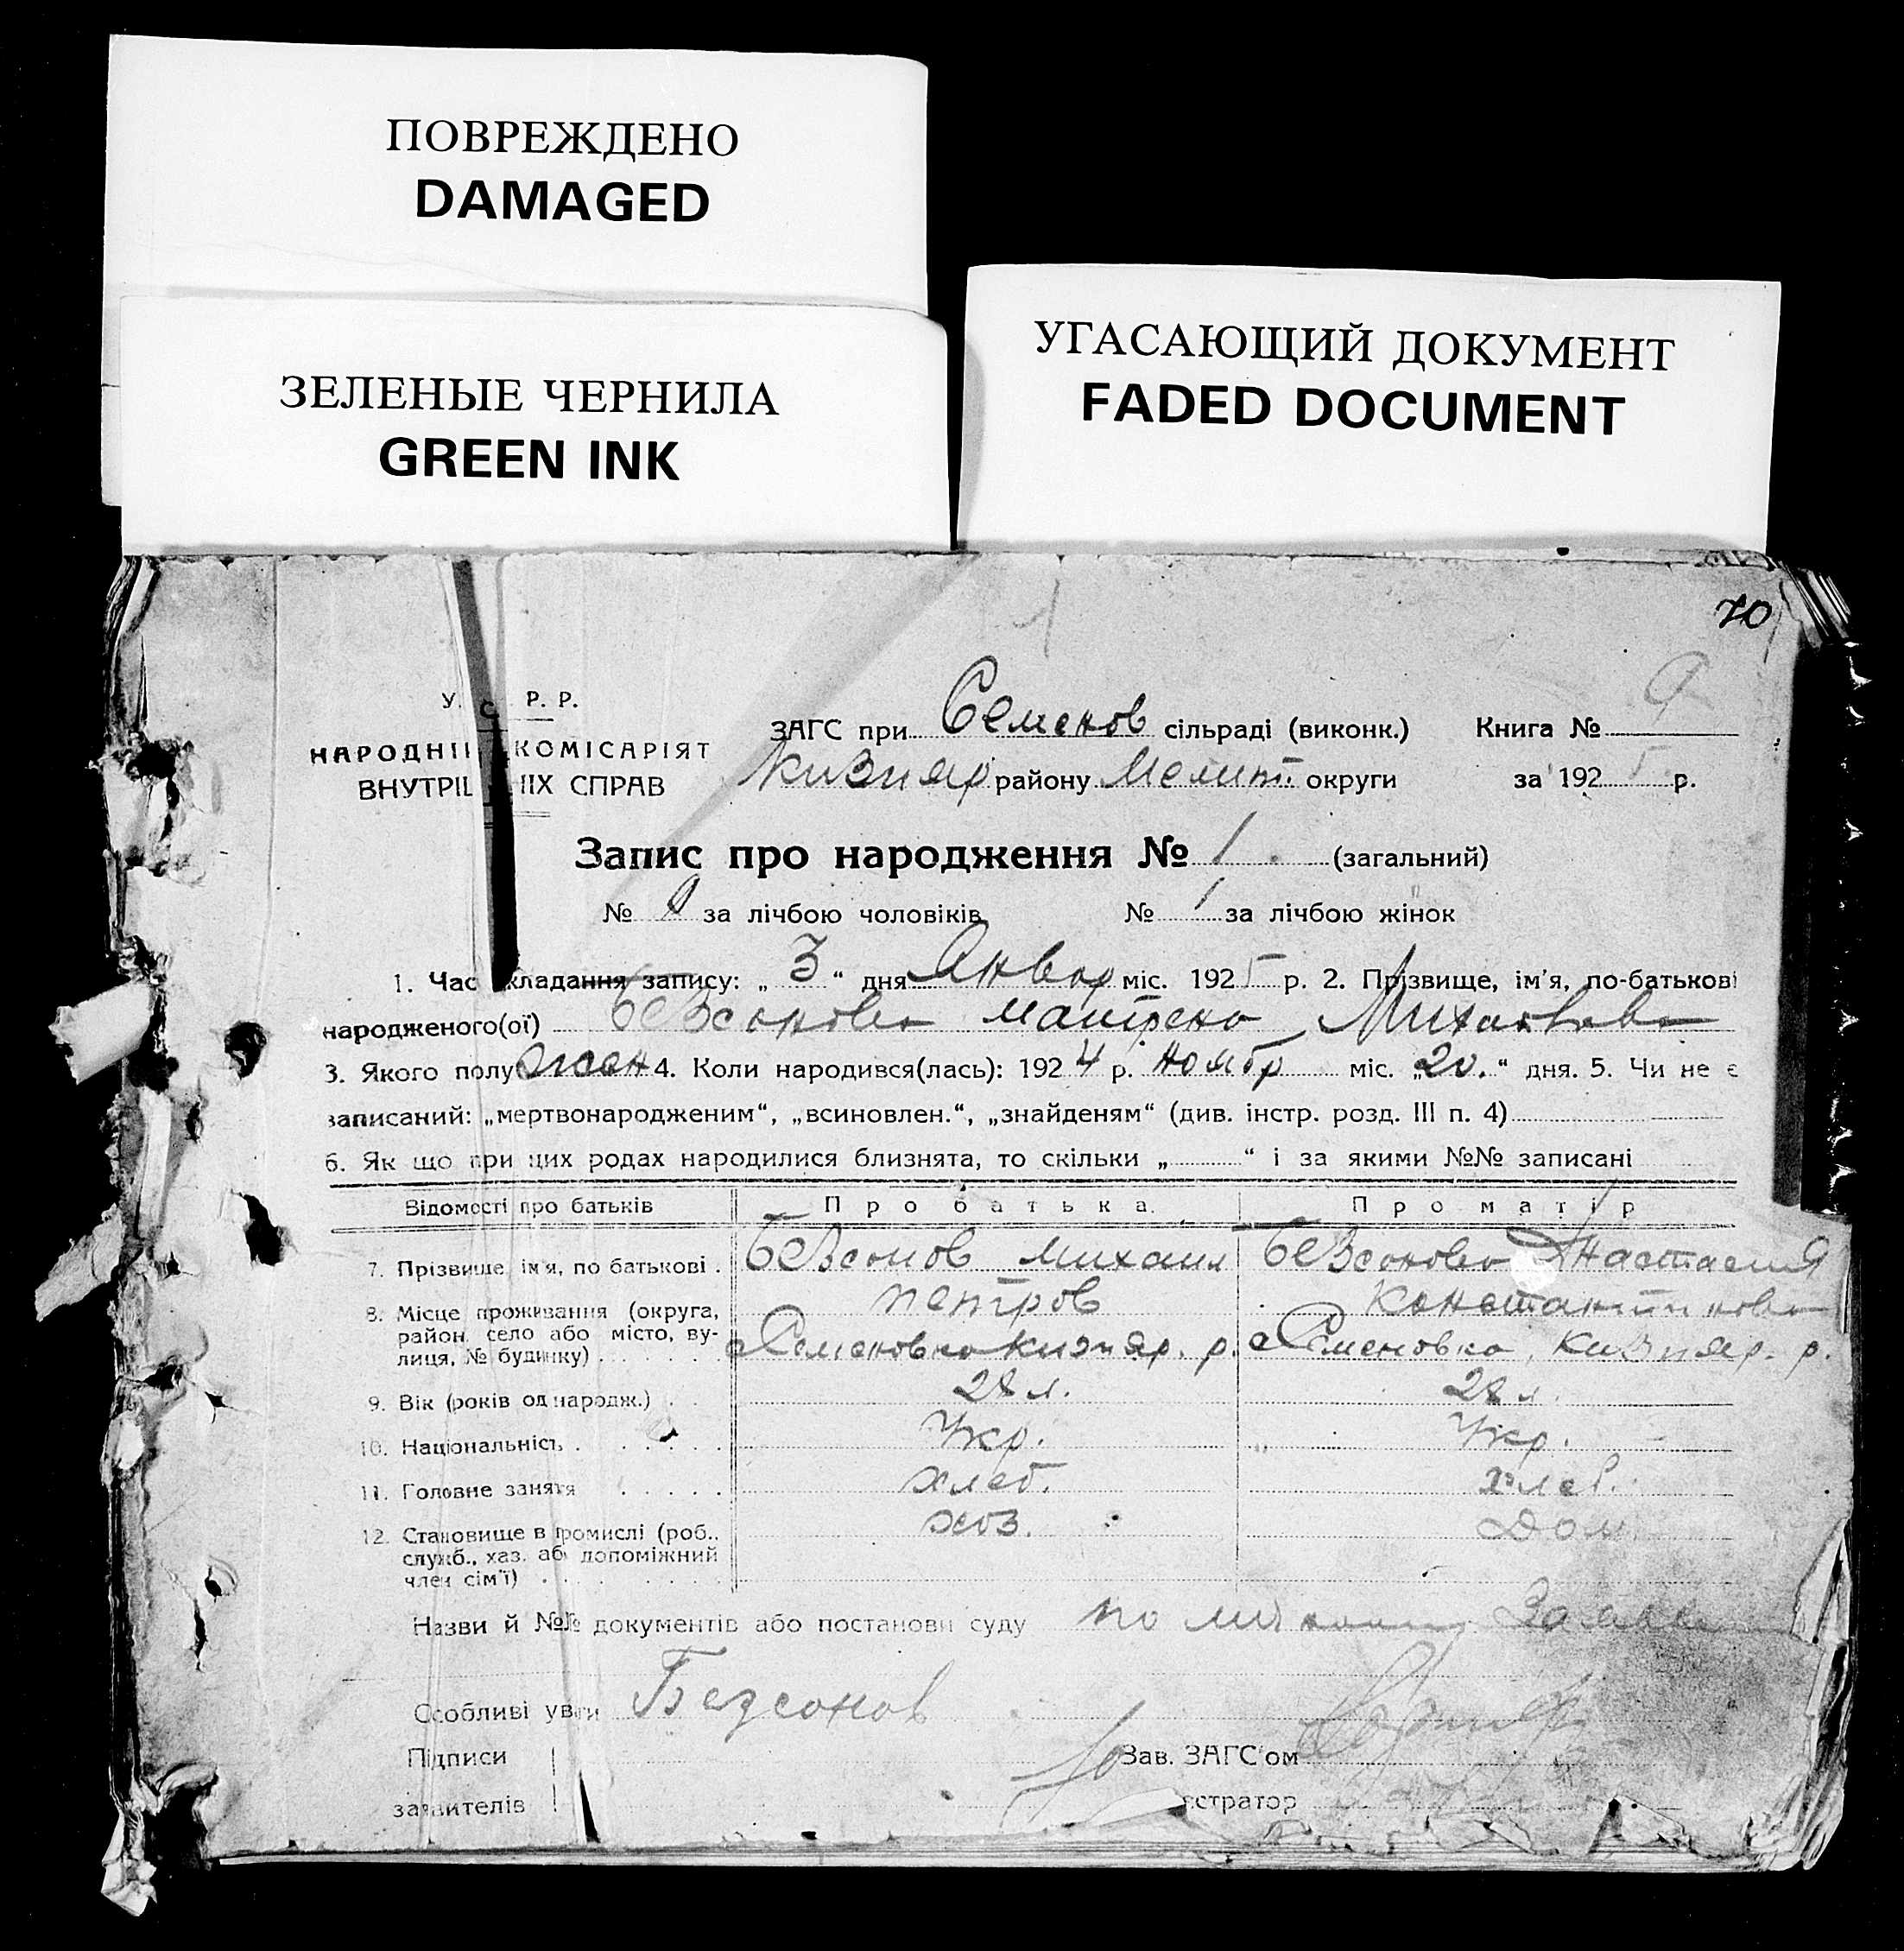 ПОВРЕЖДЕНО
DAMAGED
ЗЕЛЕНЫЕ ЧЕРНИЛА
GREEN INK
УГАСАЮЩИЙ ДОКУМЕНТ
FADED DOCUMENT
70
У. С. Р. Р.
НАРОДНІЙ КОМІСАРІЯТ
ВНУТРІШНІХ СПРАВ
ЗАГС при Семенов сільраді (виконк.) Книга № 9
Кизияр району Мелит. округи за 1925 р.
Запис про народження № 1. (загальний)
№ за лічбою чоловіків № 1 за лічбою жінок
1. Час складання запису: „ 3 “ дня Январ міс. 1925 р. 2. Прізвище, ім'я, по-батькові
народженого(ої) Безсонова Матрена Михайлова
3. Якого полу жен 4. Коли народився(лась): 1924 р. Ноябр міс. „20.“ дня. 5. Чи не є
записаний: „мертвонародженим“, „всиновлен.“, „знайденям“ (див. інстр. розд. III п. 4)
6. Як що при цих родах народилися близнята, то скільки „ “ і за якими №№ записані
Відомості про батьків Про батька. Про матір
7. Прізвище, ім'я, по батькові . Безсонов Михаил Безсонова Анастасия
Петров Константинова
8. Місце проживання (округа,
район, село або місто, ву-
лиця, № будинку) с Семеновка Кизияр. р. с Семеновка, Кизияр. р.
9. Вік (років од народж.) 28 л. 28 л.
10. Національність Укр. Укр.
11. Головне заняття хлеб. хлеб.
12. Становище в промислі (роб., хоз. Дом.
служб., хаз. або допоміжний
член сім'ї)
Назви й №№ документів або постанови суду по
Особливі уваги Безсонов
Підписи Зав. ЗАГС'ом
заявителів єстратор